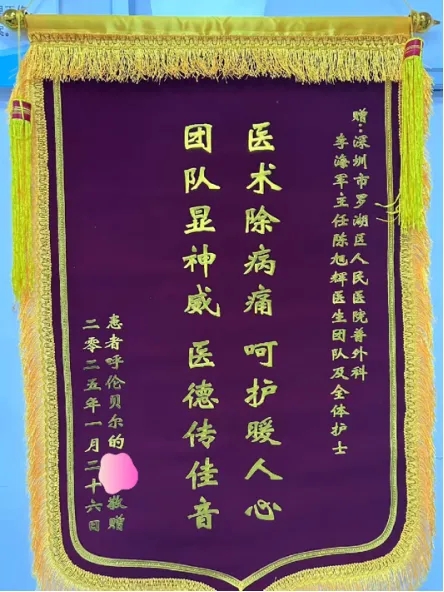 赠:深圳市罗湖区人民医院普外科
李海军主任陈旭辉医生团队及全体护士
医术除病痛 呵护暖人心
团队显神威 医德传佳音
患者呼伦贝尔的 敬赠
二零二五年一月二十六日